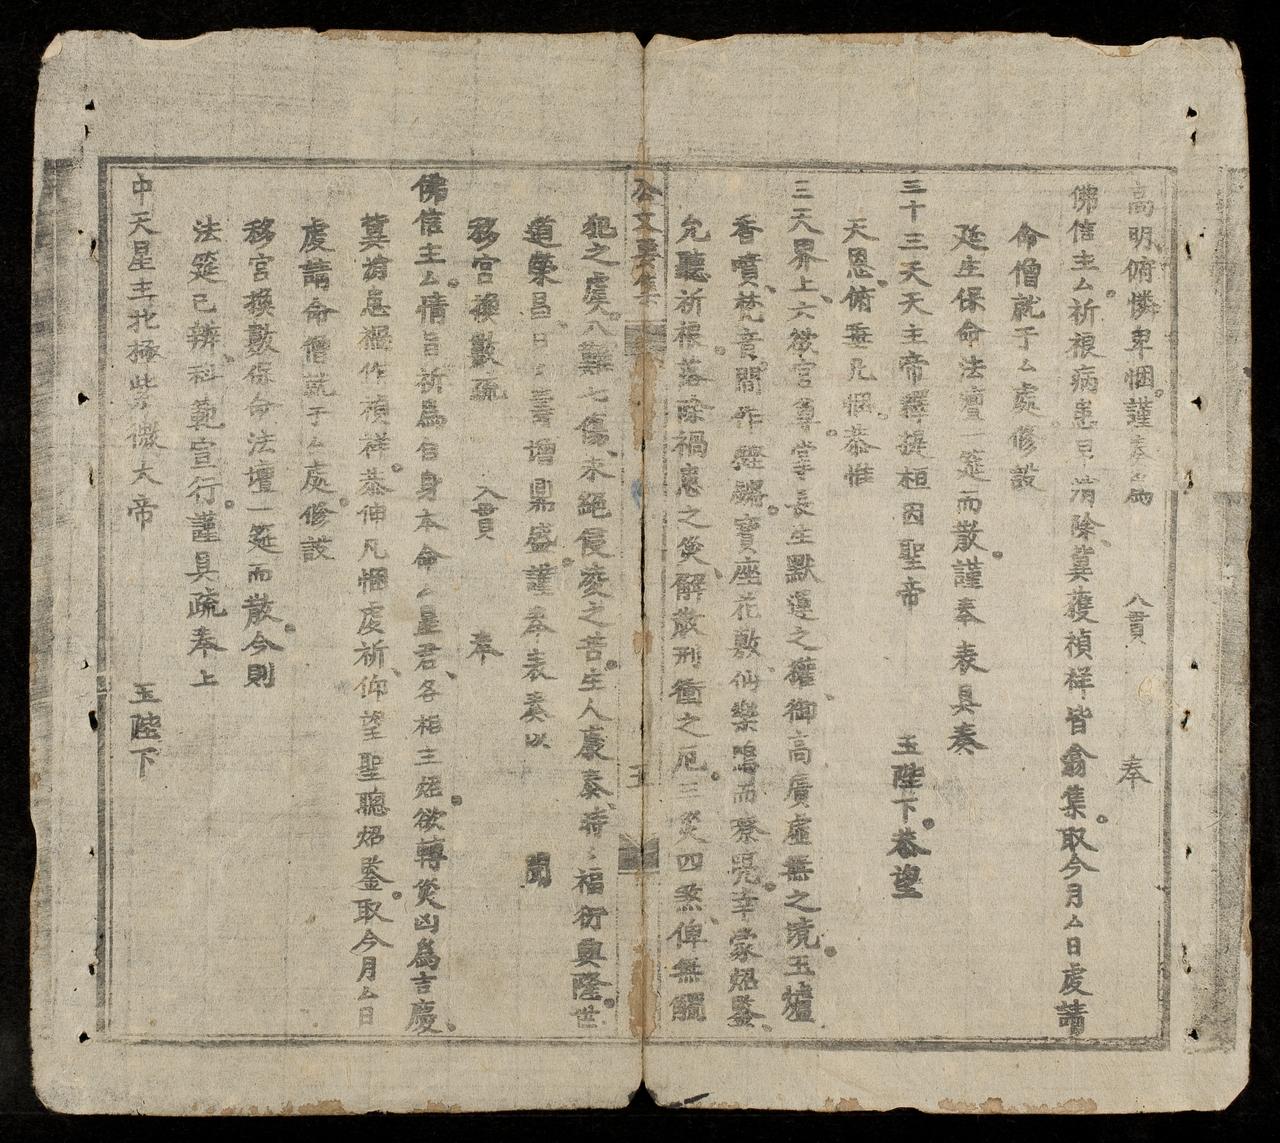 高明俯憐卑悃謹奉為 八貫 奉
佛信主厶祈根病患早消除冀獲禎祥皆翕集取今月厶日虔請
命僧就于厶處修設
延生保命法壇一筵而散謹奉表具奏
三十三天天主帝釋提桓因聖帝 玉陛下恭望
天恩俯垂凡悃恭惟
三天界上六欲宮尊掌長生默運之權御高廣虛無之境玉爐
香噴梵音間作 寶座花敷仙樂鳴而 亮幸蒙炤鑒
允聽祈根蓬除禍患之災解散刑衝之厄三災四煞俾無觸
公文要集 五
犯之虞八難七傷永絕侵凌之苦生人康泰時〻福衍興隆世
道榮昌日〻壽增鼎盛謹奉表奏以 聞
移宮換數疏 八貫 奉
佛信主厶情旨祈為自身本命厶星君各相主炤欲轉災凶為吉慶
冀蠲患禍作禎祥恭伸凡悃虔祈仰望聖聰炤鑒取今月厶日
虔請命僧就于厶處修設
移宮換數保命法壇一筵而散今則
法筵已辦科範宣行謹具疏奉上
中天星主北極紫微大帝 玉陛下